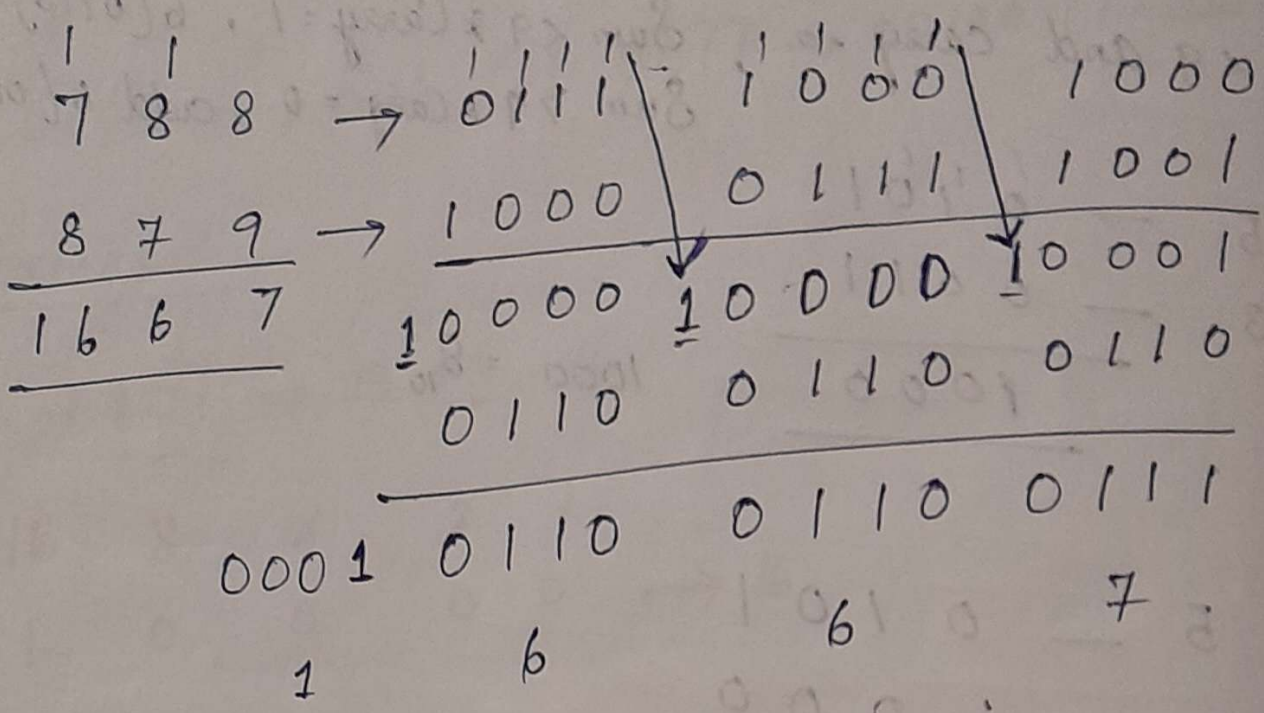 1 1 1 1 1 1 1 1 1 1
7 8 8 → 0111 1000 1000
8 7 9 → 1000 0111 1001
1667 10000 10000 10001
0110 0110 0110
0001 0110 0110 0111
1 6 6 7